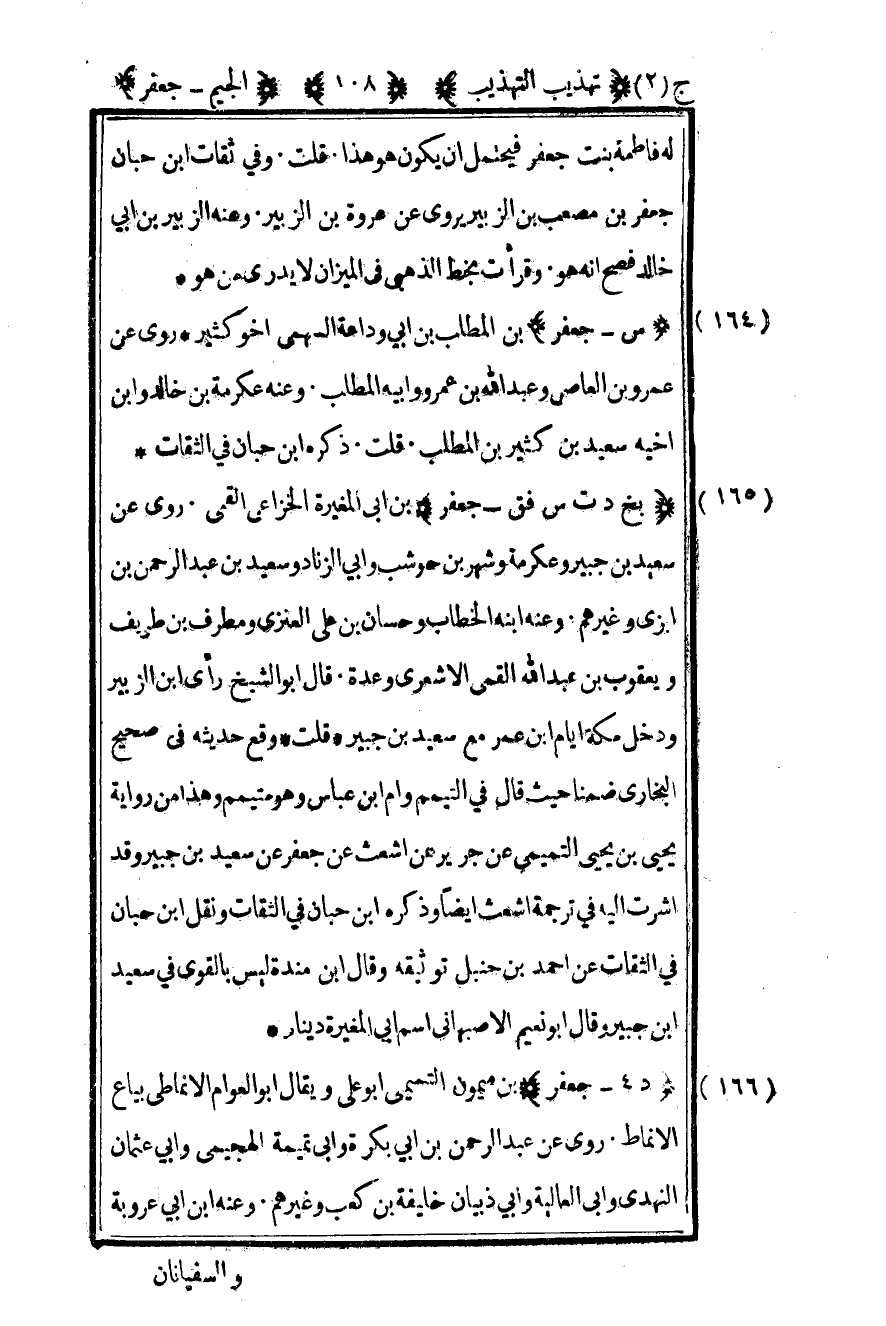 ج (٢) ﴿ تهذيب التهذيب ﴾ ﴿ ١٠٨ ﴾ ﴿ الجيم ـ جعفر ﴾
له فاطمة بنت جعفر فيحتمل ان يكون هو هذا ٠ قلت ٠ وفي ثقات ابن حبان
جعفر بن مصعب بن الزبير يروى عن عروة بن الزبير ٠ وعنه الزبير بن ابي
خالد فصح انه هو ٠ وقرأت بخط الذهبي فى الميزان لا يدرى من هو *
(١٦٤) ﴿ س ـ جعفر ﴾ بن المطلب بن ابي وداعة السهمى اخو كثير * روى عن
عمرو بن العاصى وعبد الله بن عمرو وابيه المطلب ٠ وعنه عكرمة بن خالد وابن
اخيه سعيد بن كثير بن المطلب ٠ قلت ٠ ذكره ابن حبان في الثقات *
(١٦٥) ﴿ بخ د ت س فق ـ جعفر ﴾ بن ابى المغيرة الخزاعى القمى ٠ روى عن
سعيد بن جبير وعكرمة وشهر بن حوشب وابي الزناد وسعيد بن عبد الرحمن بن
ابزى وغيرهم ٠ وعنه ابنه الخطاب وحسان بن على العنزى ومطرف بن طريف
ويعقوب بن عبد الله القمى الاشعرى وعدة ٠ قال ابو الشيخ رأى ابن الزبير
ودخل مكة ايام ابن عمر مع سعيد بن جبير * قلت * وقع حديثه فى صحيح
البخارى ضمنا حيث قال في التيمم وام ابن عباس وهو متيمم وهذا من رواية
يحيى بن يحيى التميمي عن جرير عن اشعث عن جعفر عن سعيد بن جبير وقد
اشرت اليه في ترجمة اشعث ايضًا وذكره ابن حبان في الثقات ونقل ابن حبان
في الثقات عن احمد بن حنبل توثيقه وقال ابن مندة ليس بالقوى في سعيد
ابن جبير وقال ابو نعيم الاصبهانى اسم ابي المغيرة دينار *
(١٦٦) ﴿ د ٤ ـ جعفر ﴾ بن ميمون التميمى ابو على ويقال ابو العوام الانماطى بياع
الانماط ٠ روى عن عبد الرحمن بن ابي بكرة وابى تميمة الهجيمى وابي عثمان
النهدى وابى العالية وابي ذبيان خليفة بن كعب وغيرهم ٠ وعنه ابن ابي عروبة
والسفيانان